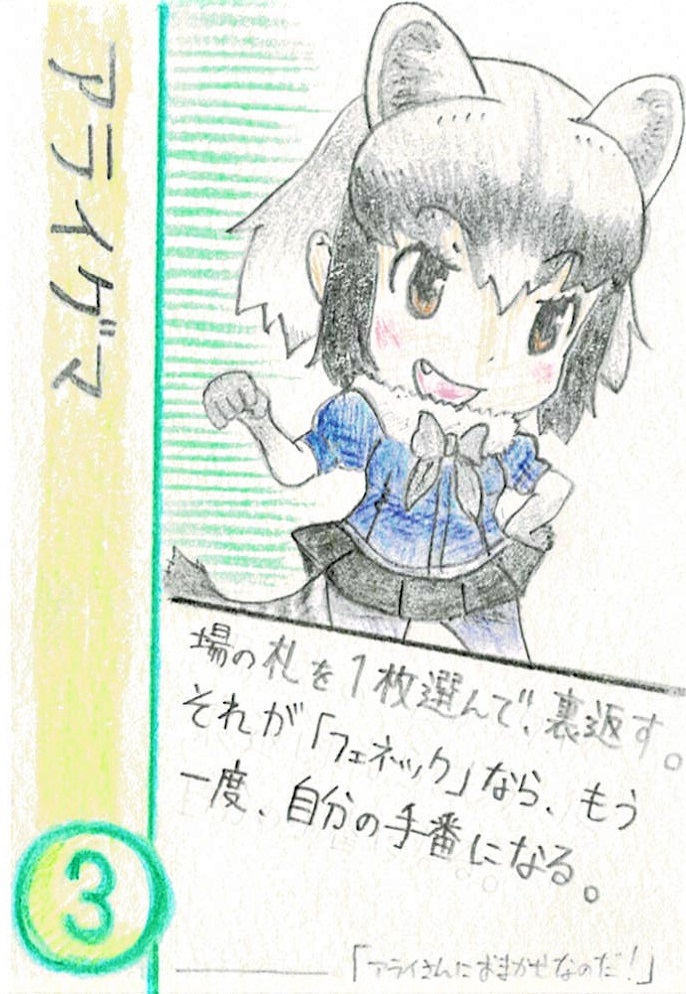 アライグマ
場の札を1枚選んで、裏返す。
それが「フェネック」なら、もう
一度、自分の手番になる。
3
「アライさんにおまかせなのだ!」